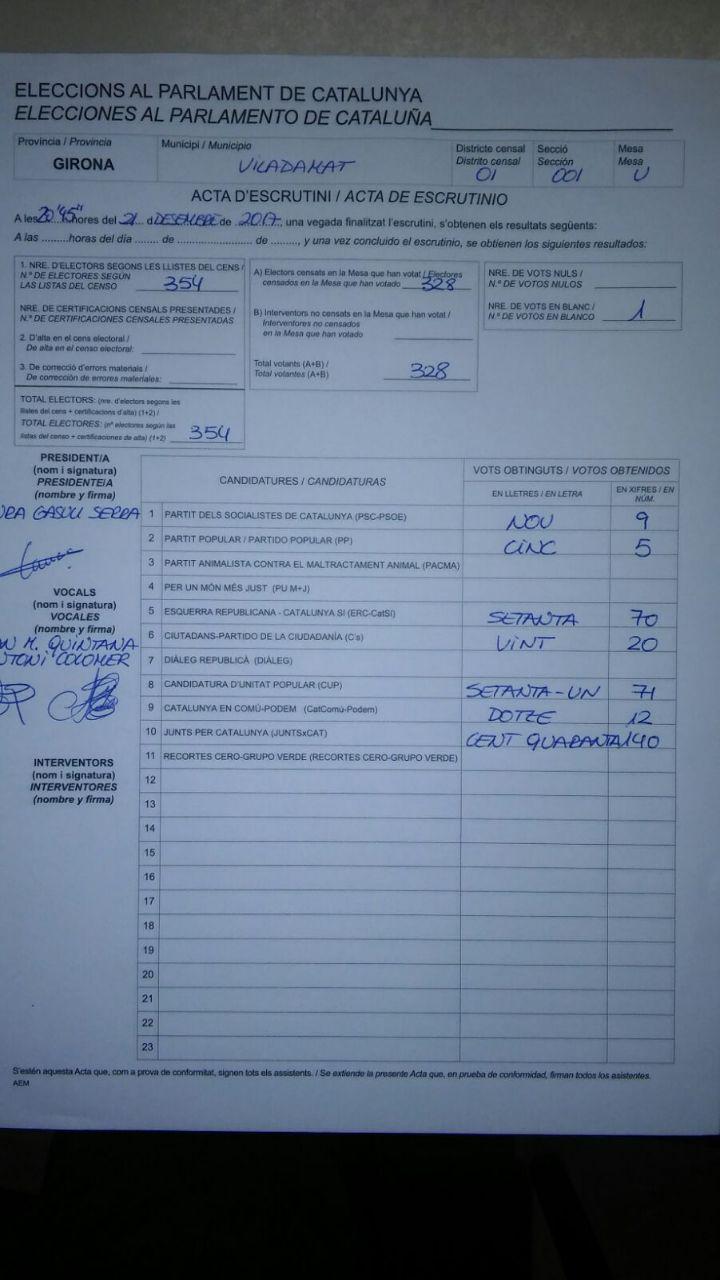 ELECCIONS AL PARLAMENT DE CATALUNYA
ELECCIONES AL PARLAMENTO DE CATALUÑA
Província / Provincia
GIRONA
Municipi / Municipio
VILADAMAT
Districte censal
Distrito censal
01
Secció
Sección
001
Mesa
Mesa
U
ACTA D'ESCRUTINI / ACTA DE ESCRUTINIO
A les 20'45" hores del 21 d DESEMBRE de 2017, una vegada finalitzat l'escrutini, s'obtenen els resultats següents:
A las .........horas del día ........ de .......................... de ........., y una vez concluido el escrutinio, se obtienen los siguientes resultados:
1. NRE. D'ELECTORS SEGONS LES LLISTES DEL CENS /
N.º DE ELECTORES SEGÚN
LAS LISTAS DEL CENSO 354
NRE. DE CERTIFICACIONS CENSALS PRESENTADES /
N.º DE CERTIFICACIONES CENSALES PRESENTADAS
2. D'alta en el cens electoral /
De alta en el censo electoral:
3. De correcció d'errors materials /
De corrección de errores materiales:
TOTAL ELECTORS: (nre. d'electors segons les
llistes del cens + certificacions d'alta) (1+2) /
TOTAL ELECTORES: (nº electores según las
listas del censo + certificaciones de alta) (1+2) 354
A) Electors censats en la Mesa que han votat / Electores
censados en la Mesa que han votado 328
B) Interventors no censats en la Mesa que han votat /
Interventores no censados
en la Mesa que han votado
Total votants (A+B) /
Total votantes (A+B) 328
NRE. DE VOTS NULS /
N.º DE VOTOS NULOS
NRE. DE VOTS EN BLANC /
N.º DE VOTOS EN BLANCO 1
PRESIDENT/A
(nom i signatura)
PRESIDENTE/A
(nombre y firma)
SERRA
VOCALS
(nom i signatura)
VOCALES
(nombre y firma)
M. QUINTANA
COLOMER
INTERVENTORS
(nom i signatura)
INTERVENTORES
(nombre y firma)
CANDIDATURES / CANDIDATURAS
VOTS OBTINGUTS / VOTOS OBTENIDOS
EN LLETRES / EN LETRA
EN XIFRES / EN NÚM.
1 PARTIT DELS SOCIALISTES DE CATALUNYA (PSC-PSOE) NOU 9
2 PARTIT POPULAR / PARTIDO POPULAR (PP) CINC 5
3 PARTIT ANIMALISTA CONTRA EL MALTRACTAMENT ANIMAL (PACMA)
4 PER UN MÓN MÉS JUST (PU M+J)
5 ESQUERRA REPUBLICANA - CATALUNYA SÍ (ERC-CatSí) SETANTA 70
6 CIUTADANS-PARTIDO DE LA CIUDADANÍA (C's) VINT 20
7 DIÀLEG REPUBLICÀ (DIÀLEG)
8 CANDIDATURA D'UNITAT POPULAR (CUP) SETANTA-UN 71
9 CATALUNYA EN COMÚ-PODEM (CatComú-Podem) DOTZE 12
10 JUNTS PER CATALUNYA (JUNTSxCAT) CENT QUARANTA 140
11 RECORTES CERO-GRUPO VERDE (RECORTES CERO-GRUPO VERDE)
12
13
14
15
16
17
18
19
20
21
22
23
S'estén aquesta Acta que, com a prova de conformitat, signen tots els assistents. / Se extiende la presente Acta que, en prueba de conformidad, firman todos los asistentes.
AEM